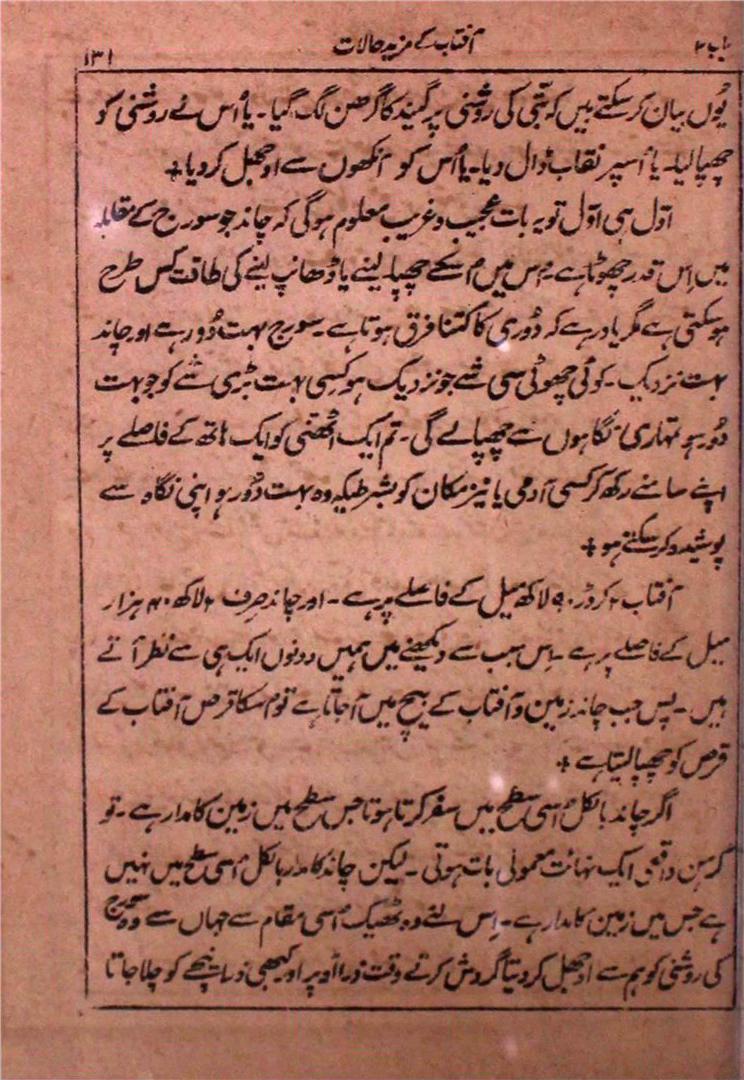 باب ۲ آفتاب کے مزید حالات ۱۳۱
یُوں بیان کر سکتے ہیں کہ بتّی کی روشنی پر گیند کا گرھن لگ گیا ۔ یا اُس نے روشنی کو
چھپا لیا ۔ یا اُسپر نقاب ڈال دیا ۔ یا اُس کو آنکھوں سے اوجھل کر دیا +
اوّل ہی اوّل تو یہ بات عجیب و غریب معلوم ہوگی کہ چاند جو سورج کے مقابلہ
میں اِس قدر چھوٹا ہے ۔ اُس میں اُسکے چھپا لینے یا ڈھانپ لینے کی طاقت کس طرح
ہو سکتی ہے مگر یاد رہے کہ دُوری کا کتنا فرق ہوتا ہے ۔ سورج بہت دُور ہے اور چاند
بہت نزدیک ۔ کوئی چھوٹی سی شے جو نزدیک ہو کسی بہت بڑی شے کو جو بہت
دُور ہو تمہاری نگاہوں سے چھپا لے گی ۔ تم ایک اٹھنی کو ایک ہاتھ کے فاصلے پر
اپنے سامنے رکھ کر کسی آدمی یا نیز مکان کو بشرطیکہ وہ بہت دُور ہو اپنی نگاہ سے
پوشیدہ کر سکتے ہو +
آفتاب ۹ کروڑ ۹۰ لاکھ میل کے فاصلے پر ہے ۔ اور چاند صِرف ۲ لاکھ ۴۰ ہزار
میل کے فاصلے پر ہے ۔ اِس سبب سے دیکھنے میں ہمیں دونوں ایک ہی سے نظر آتے
ہیں ۔ پس جب چاند زمین و آفتاب کے بیچ میں آ جاتا ہے تو اُسکا قرص آفتاب کے
قرص کو چھپا لیتا ہے +
اگر چاند بالکل اُسی سطح میں سفر کرتا ہوتا جس سطح میں زمین کا مدار ہے ۔ تو
گرہن واقعی ایک نہائت معمولی بات ہوتی ۔ لیکن چاند کا مدار بالکل اُسی سطح میں نہیں
ہے جس میں زمین کا مدار ہے ۔ اِس لئے وہ ٹھیک اُسی مقام سے جہاں سے وہ سورج
کی روشنی کو ہم سے اوجھل کر دیتا گردش کرتے وقت ذرا اُوپر اور کبھی ذرا نیچے کو چلا جاتا